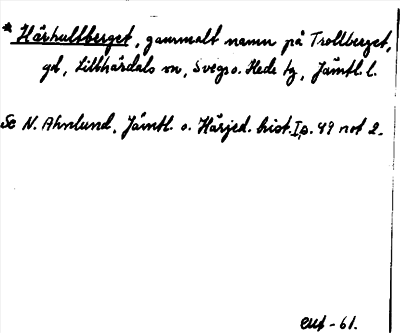 * Härhultberget, gammalt namn på Trollberget,
gd, Lillhärdals sn, Svegs o. Hede tg, Jämtl. l.
Se N. Ahnlund, Jämtl. o. Härjed. hist. I, s. 49 not 2.
-61.